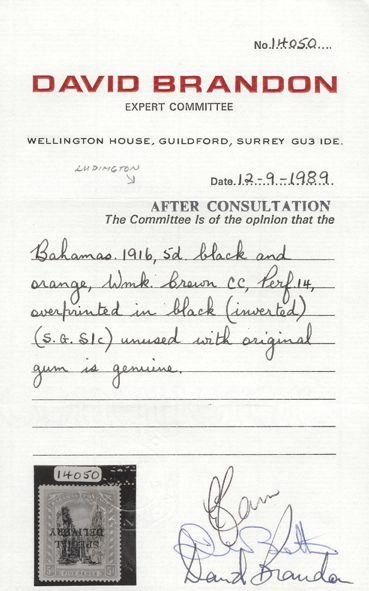 No. 14050
DAVID BRANDON
EXPERT COMMITTEE
WELLINGTON HOUSE, GUILDFORD, SURREY GU3 IDE.
LUDINGTON
Date. 12-9-1989.
AFTER CONSULTATION
The Committee is of the opinion that the
Bahamas. 1916, 5d. black and
orange, Wmk. Crown CC, Perf. 14,
overprinted in black (inverted)
(S.G. S1c) unused with original
gum is genuine.
14050
SPECIAL
DELIVERY
David Brandon